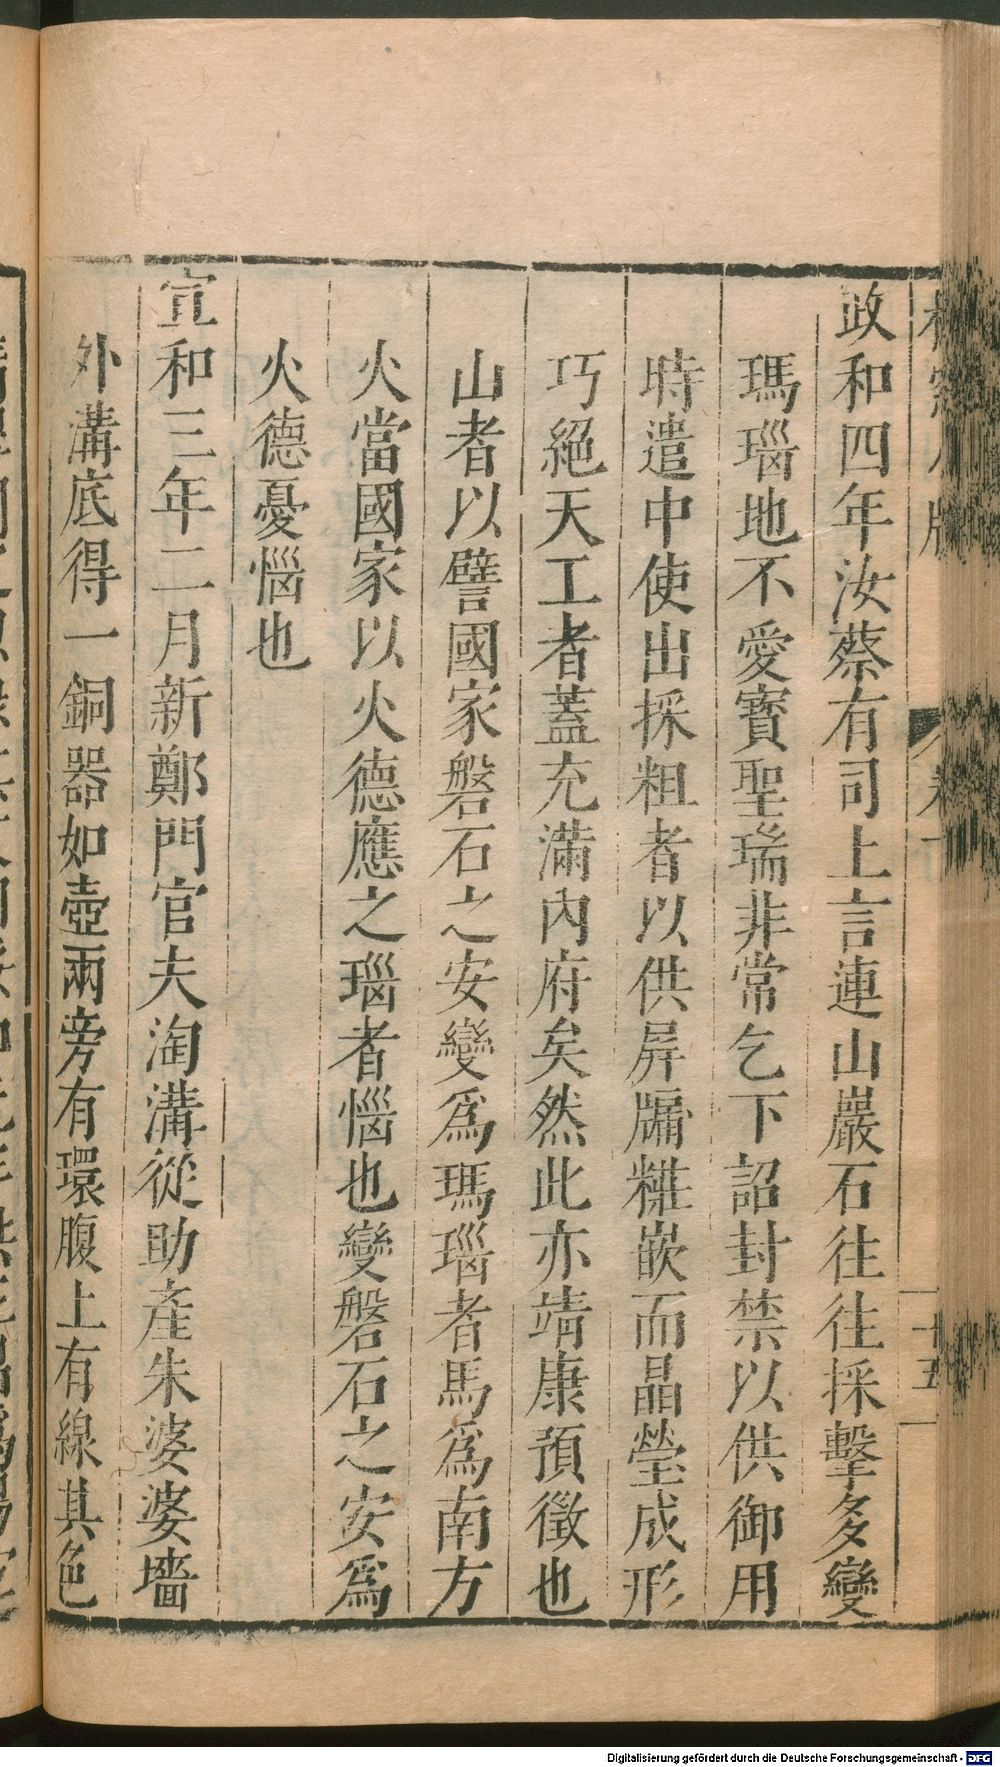 政和四年汝蔡有司上言連山巖石往往採擊多變
瑪瑙地不愛寶聖瑞非常乞下詔封禁以供御用
時遣中使出採粗者以供屏牖糚嵌而晶瑩成形
巧絕天工者蓋充滿內府矣然此亦靖康預徵也
山者以譬國家磐石之安變爲瑪瑙者馬爲南方
火當國家以火德應之瑙者惱也變磐石之安爲
火德憂惱也
宣和三年二月新鄭門官夫淘溝從助產朱婆婆墻
外溝底得一銅器如壺兩旁有環腹上有線其色
十五
Digitalisierung gefördert durch die Deutsche Forschungsgemeinschaft - DFG